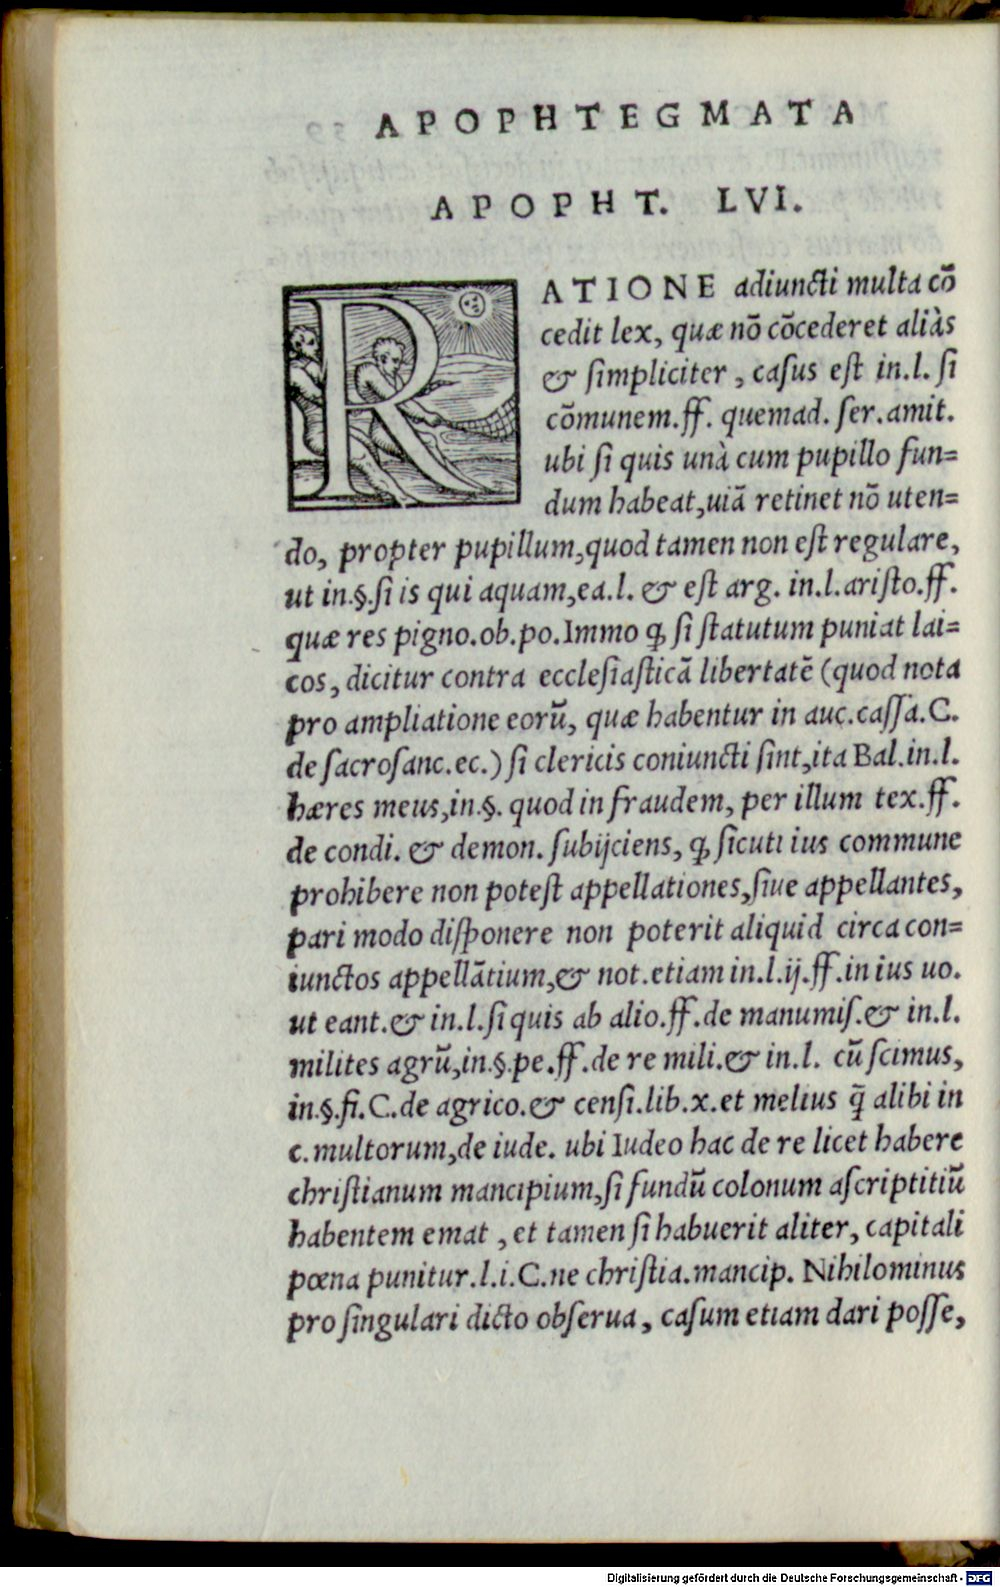 APOPHTEGMATA
APOPHT. LVI.
RATIONE adiuncti multa cō
cedit lex, quæ nō cōcederet aliàs
& ſimpliciter, caſus eſt in.l. ſi
cōmunem.ff. quemad. ſer.amit.
ubi ſi quis unà cum pupillo fun=
dum habeat,uiā retinet nō uten=
do, propter pupillum,quod tamen non eſt regulare,
ut in.§.ſi is qui aquam,ea.l. & eſt arg. in.l.ariſto.ff.
quæ res pigno.ob.po.Immo ꝙ ſi ſtatutum puniat lai=
cos, dicitur contra eccleſiaſticā libertatē (quod nota
pro ampliatione eorū, quæ habentur in auc.caſſa.C.
de ſacroſanc.ec.) ſi clericis coniuncti ſint,ita Bal.in.l.
hæres meus,in.§. quod in fraudem, per illum tex.ff.
de condi. & demon. ſubijciens, ꝙ ſicuti ius commune
prohibere non poteſt appellationes,ſiue appellantes,
pari modo diſponere non poterit aliquid circa con=
iunctos appellātium,& not.etiam in.l.ij.ff.in ius uo.
ut eant.& in.l.ſi quis ab alio.ff.de manumiſ.& in.l.
milites agrū,in.§.pe.ff.de re mili.& in.l. cū ſcimus,
in.§.fi.C.de agrico.& cenſi.lib.x.et melius q̄ alibi in
c.multorum,de iude. ubi Iudeo hac de re licet habere
chriſtianum mancipium,ſi fundū colonum aſcriptitiū
habentem emat , et tamen ſi habuerit aliter, capitali
pœna punitur.l.i.C.ne chriſtia.mancip. Nihilominus
pro ſingulari dicto obſerua, caſum etiam dari poſſe,
Digitalisierung gefördert durch die Deutsche Forschungsgemeinschaft - DFG